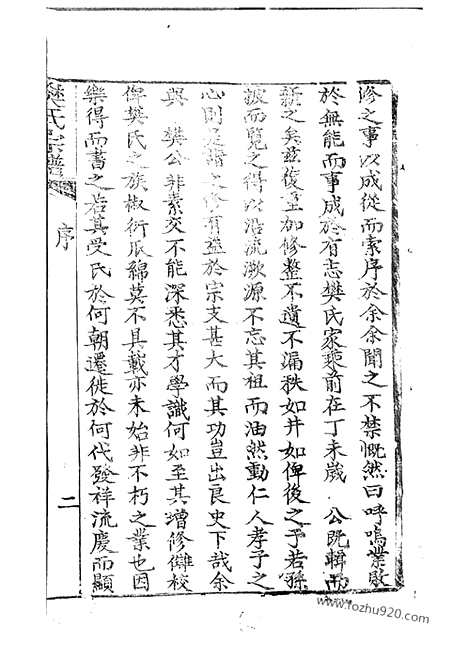 修之事以成從而索序於余余聞之不禁慨然曰呼嗚業敗
於無能而事成於有志樊氏家乘前在丁未歲 公既輯而
新之矣茲復重加修整不遺不漏秩如井如俾後之子若孫
披而覽之得以沿流溯源不忘其祖而油然動仁人孝子之
心則是譜之修有益於宗支甚大而其功豈出良史下哉余
與 樊公非素交不能深悉其才學識何如至其增修讎校
俾樊氏之族椒衍瓜綿莫不具載亦未始非不朽之業也因
樂得而書之若其受氏於何朝遷徙於何代發祥流慶而顯
樊氏宗譜
序
二
www.fozhu920.com